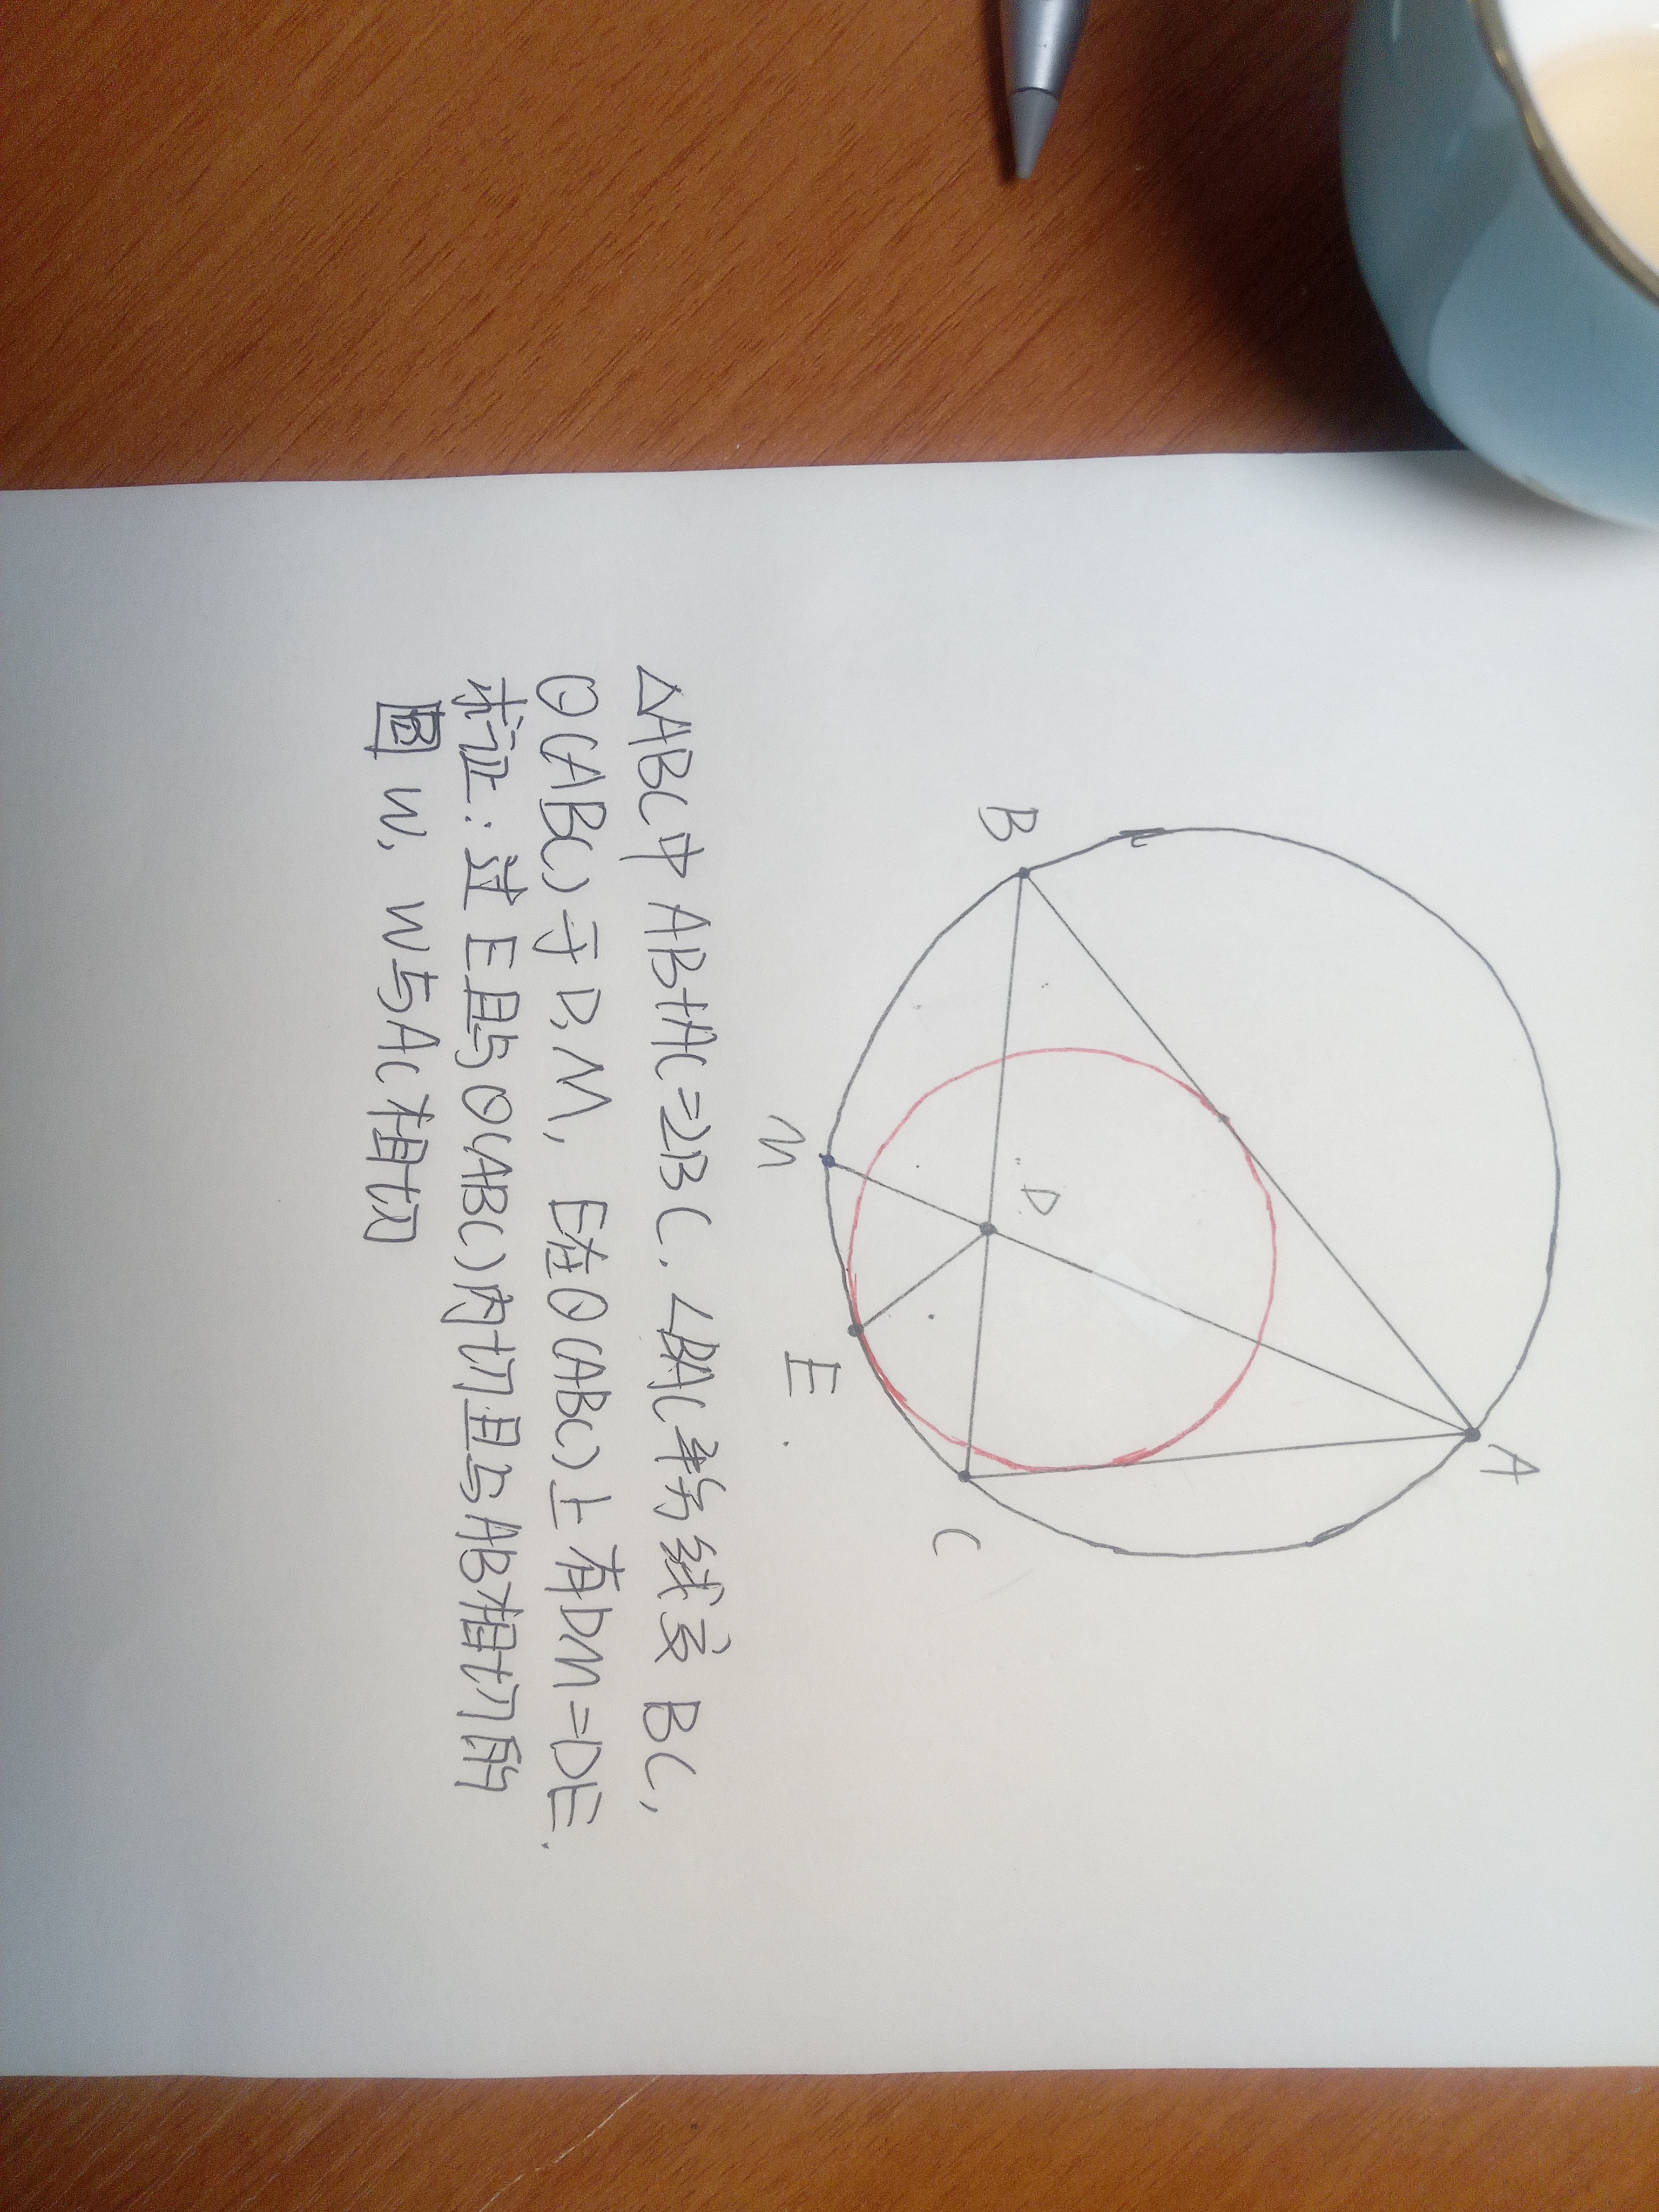 A
B
D
C
M
E
△ABC中AB+AC=2BC.∠BAC平分线交BC,
⊙(ABC)于D,M,E在⊙(ABC)上有DM=DE.
求证:过E且与⊙(ABC)内切且与AB相切的
圆W,W与AC相切